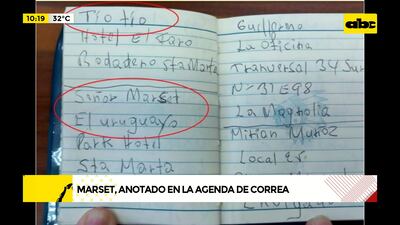 10:19 32°C
abc
Tío tío
Hotel El Faro
Rodadero Sta Marta
Señor Marset
El uruguayo
Park Hotel
Sta Marta
Guillermo
La Oficina
Tranversal 34 Sur
N° 31E98
La Magnolia
Mirian Muñoz
Local Ex.
Envigado
MARSET, ANOTADO EN LA AGENDA DE CORREA